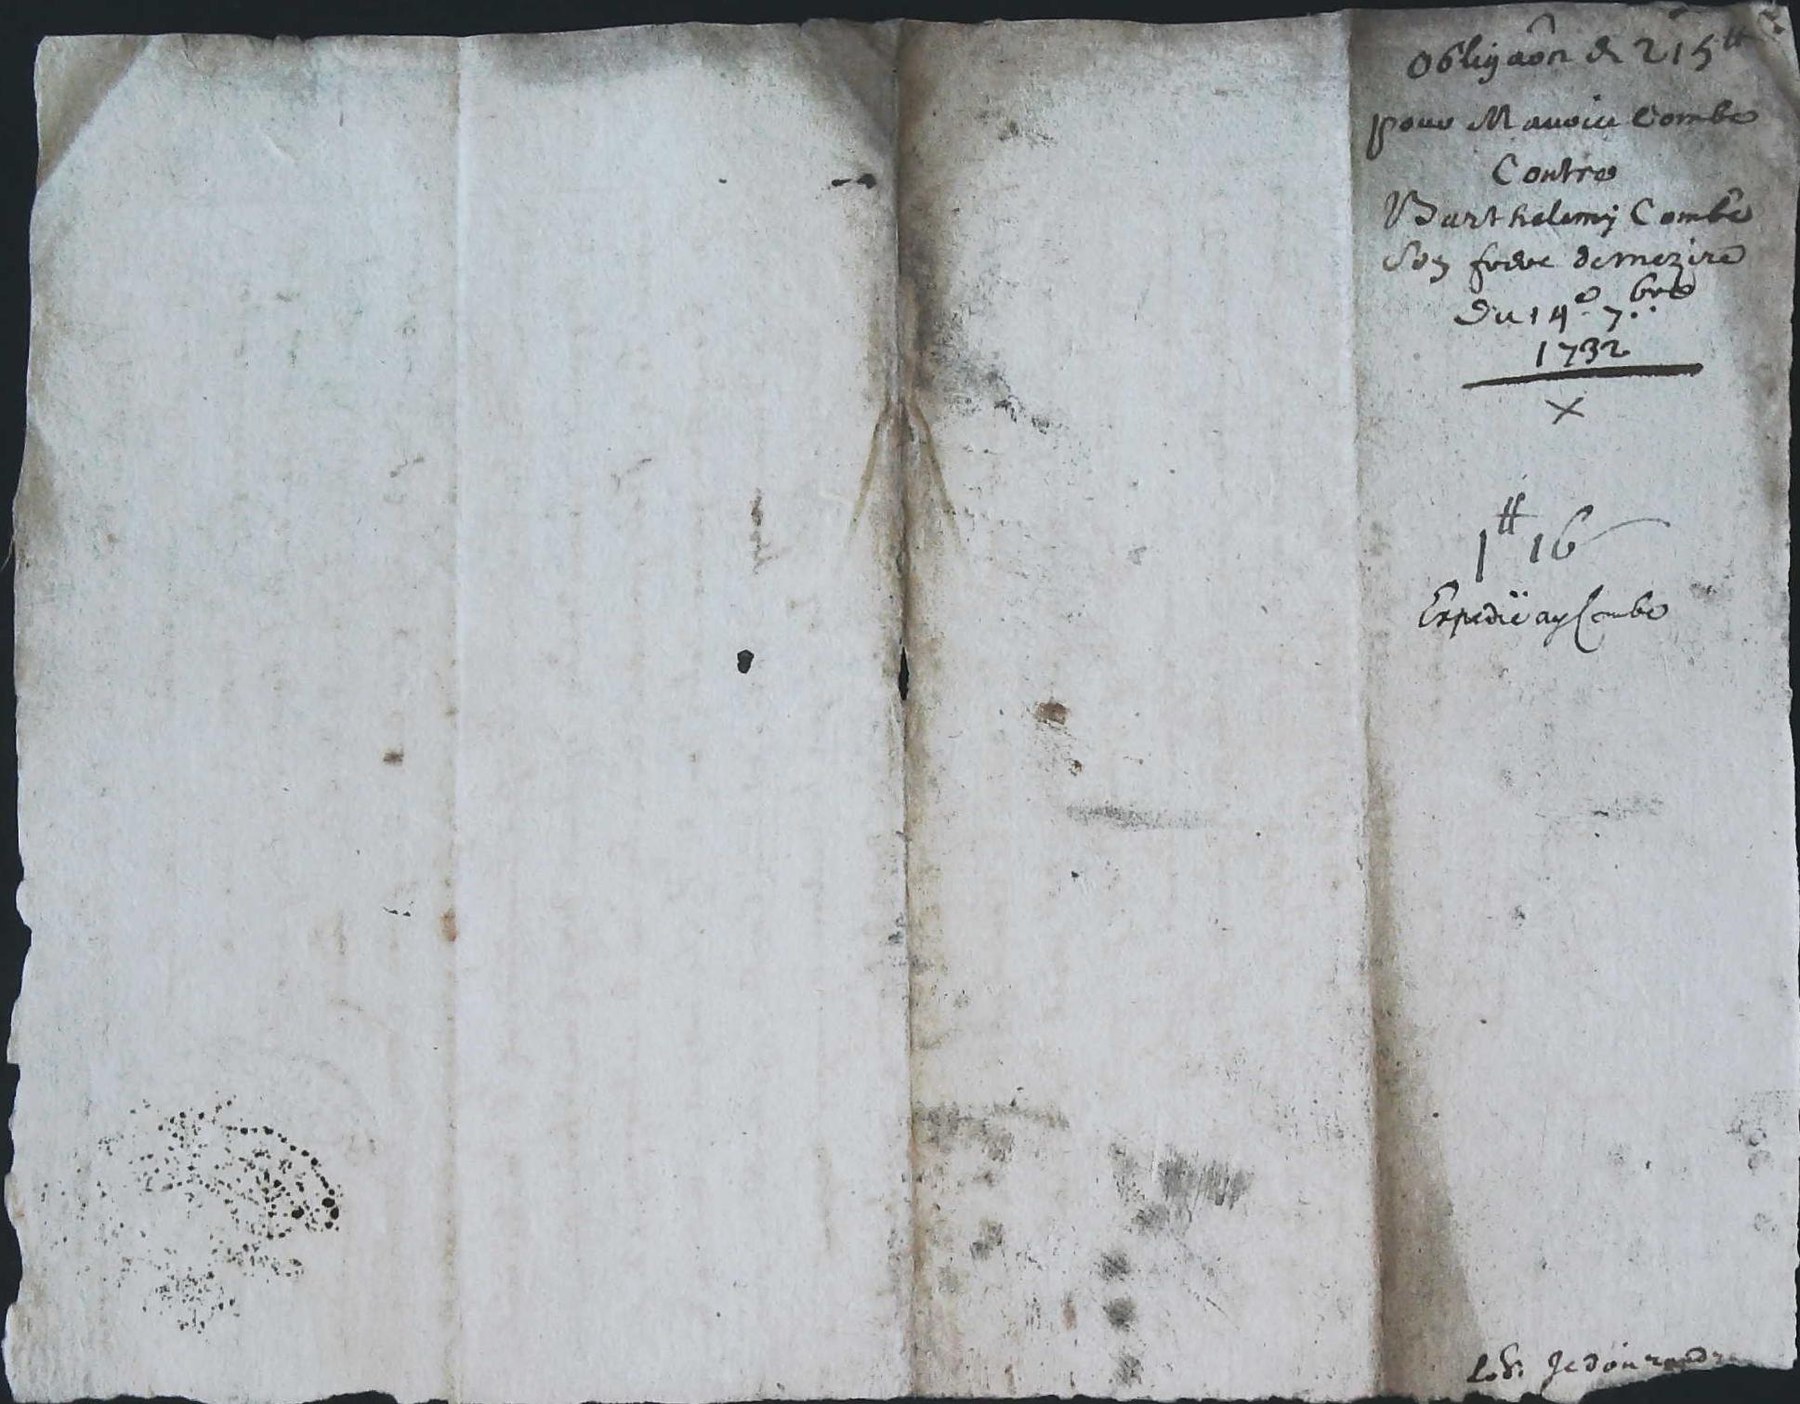 Obligaôn de 215tt
pour Maurice Combe
Contre
Barthelemy Combe
Son frere de mezire
Du 14e 7bre
1732
x
1tt 16
Expedié au Combe
Je dois rendre